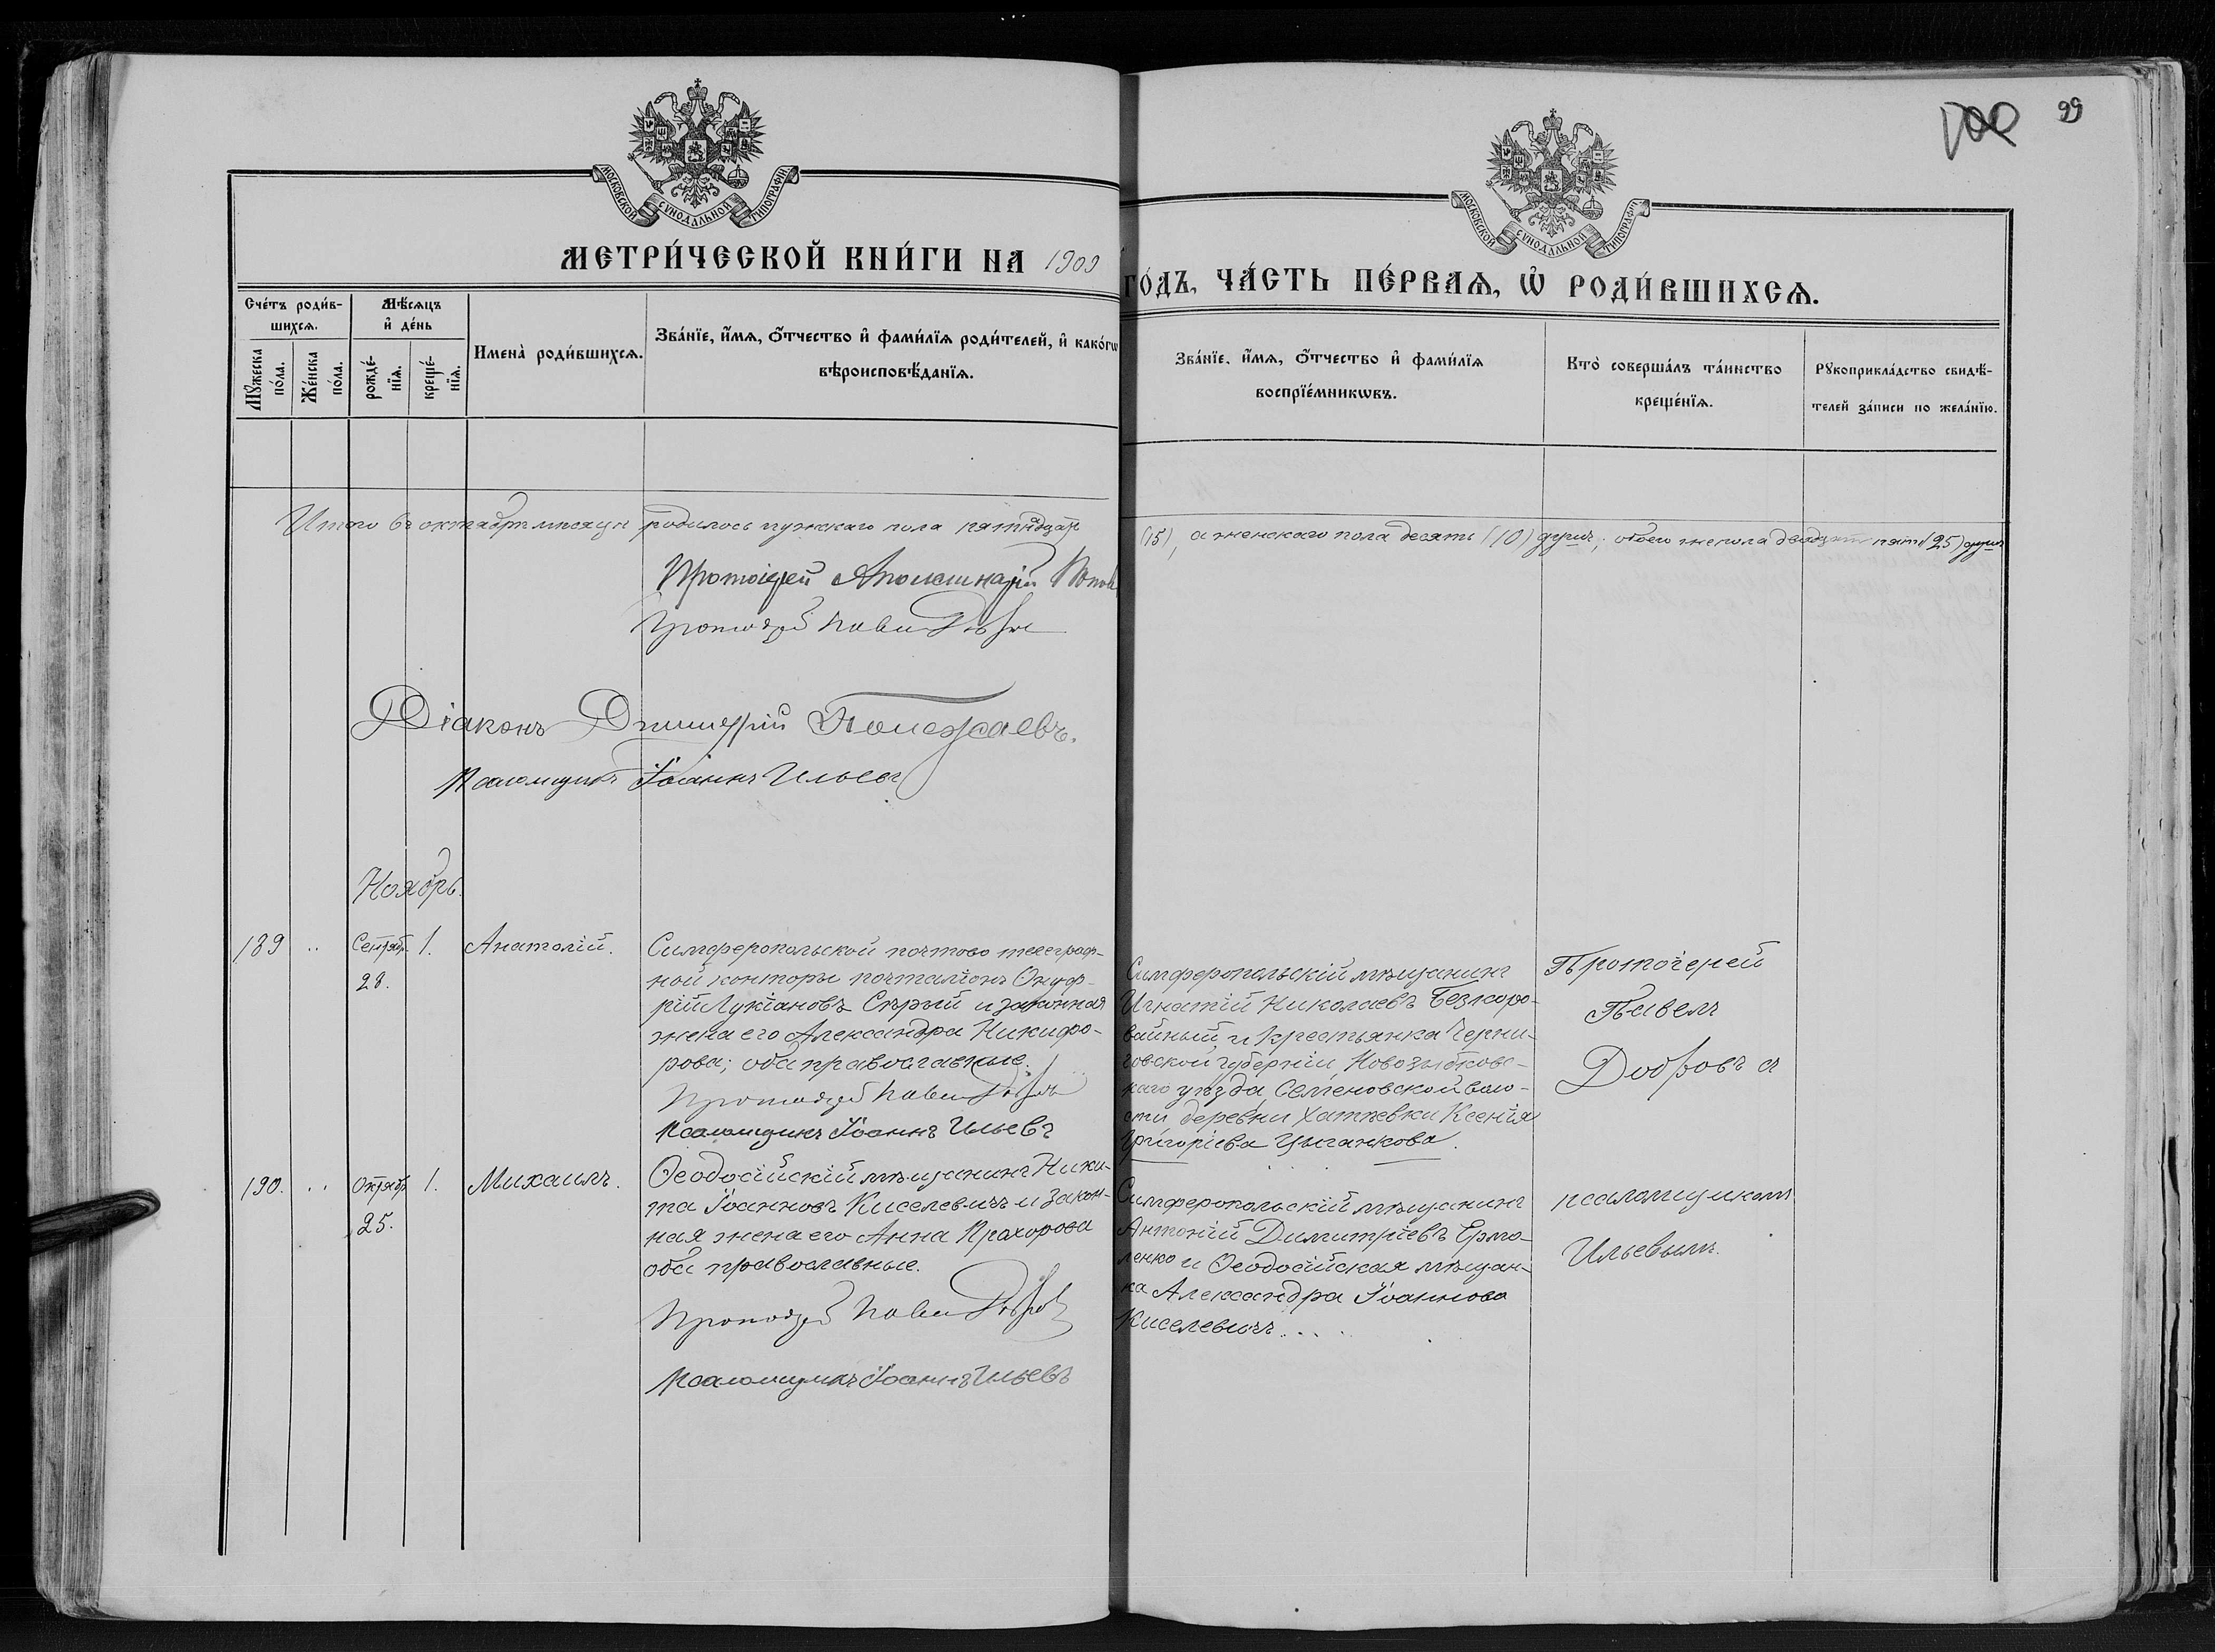 99
МОСКОВСКОЙ СУНОДАЛЬНОЙ ТИПОГРАФІИ
МОСКОВСКОЙ СУНОДАЛЬНОЙ ТИПОГРАФІИ
МЕТРИ́ЧЕСКОЙ КНИ́ГИ НА 1909
ГО́ДЪ, ЧА́СТЬ ПЕ́РВАѦ, Ѡ҆ РОДИ́ВШИХСѦ.
Сче́тъ роди́в-
шихсѧ.
Мꙋ́жеска
по́ла.
Же́нска
по́ла.
Мѣ́сѧцъ
и҆ де́нь
рожде́-
нїѧ.
креще́-
нїѧ.
Имена̀ роди́вшихсѧ.
Зва́нїе, и҆́мѧ, ѻ҆́тчество и҆ фами́лїѧ роди́телей, и҆ како́гѡ
вѣроисповѣ́данїѧ.
Зва́нїе, и҆́мѧ, ѻ҆́тчество и҆ фами́лїѧ
воспрїе́мникѡвъ.
Кто̀ соверша́лъ та́инство
креще́нїѧ.
Рꙋкоприкла́дство свидѣ́-
телей за́писи по жела́нїю.
Итого въ октябрѣ мѣсяцѣ родилось мужскаго пола пятнадцать
(15), а женскаго пола десять (10) душъ; обоего же пола двадцать пять (25) душъ
Протоіерей Аполлинарій Попов
Протоіерей Павелъ Добровъ
Діаконъ Димитрій Полежаевъ.
Псаломщикъ Іоаннъ Ильевъ
Ноябрь.
189 .. Сентябр. 1. Анатолій.
28.
Симферопольской почтово телеграф-
ной конторы почталіонъ Онуф-
рій Лукіановъ Сѣрый и законная
жена его Александра Никифо-
рова; оба православные.
Протоіерей Павелъ Добровъ
Псаломщикъ Іоаннъ Ильевъ
Симферопольскій мѣщанинъ
Игнатій Николаевъ Безкоро-
вайный и крестьянка Черни-
говской губерніи, Новозыбковс-
каго уѣзда, Семеновской воло-
сти деревни Ксенія
Григоріева Цыганкова.
Протоіерей
Павелъ
Добровъ съ
190. .. Октябр. 1. Михаилъ.
25.
Ѳеодосійскій мѣщанинъ Ники-
та Іоанновъ Киселевичъ и закон-
ная жена его Анна Прохорова
оба православные.
Протоіерей Павелъ Добровъ
Псаломщикъ Іоаннъ Ильевъ
Симферопольскій мѣщанинъ
Антоній Димитріевъ Ермо-
ленко и Ѳеодосійская мѣщан-
ка Александра Іоаннова
Киселевичъ....
псаломщикомъ
Ильевымъ.